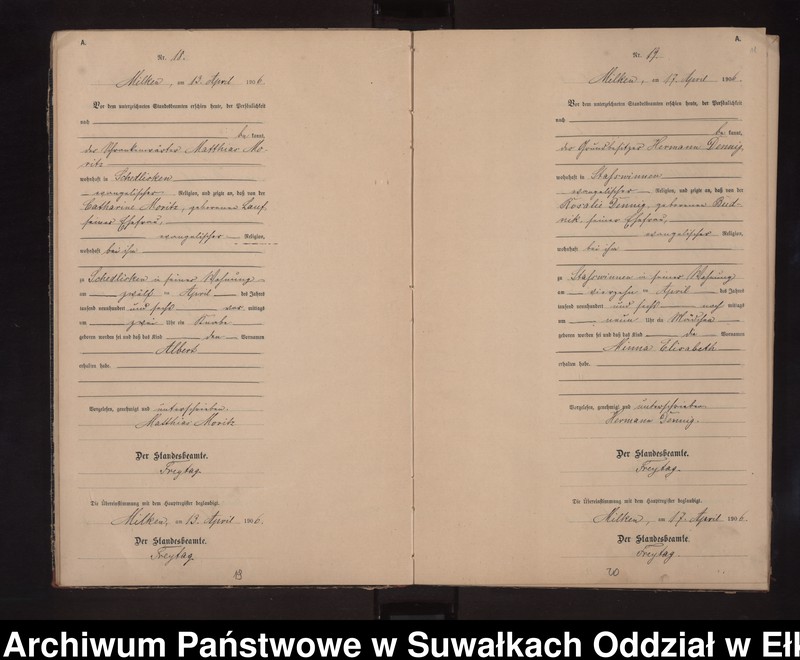 A.
Nr. 18.
Milken, am 13. April 1906
Vor dem unterzeichneten Standesbeamten erschien heute, der Persönlichkeit
nach
be kannt,
der Matthias Mo-
ritz
wohnhaft in Schedlisken
evangelischer Religion, und zeigte an, daß von der
Catharine Moritz, geborenen
seiner Ehefrau,
evangelischer Religion,
wohnhaft bei ihm
zu Schedlisken in seiner Wohnung
am zwölf ten April des Jahres
tausend neunhundert und sechs vor mittags
um zwei Uhr ein Knabe
geboren worden sei und daß das Kind den Vornamen
Albert
erhalten habe.
Vorgelesen, genehmigt und unterschrieben.
Matthias Moritz
Der Standesbeamte.
Freytag.
Die Übereinstimmung mit dem Hauptregister beglaubigt.
Milken, am 13. April 1906.
Der Standesbeamte.
Freytag
19
A.
Nr. 19.
Milken, am 17. April 1906.
Vor dem unterzeichneten Standesbeamten erschien heute, der Persönlichkeit
nach
be kannt,
der Grundbesitzer Hermann Dennig,
wohnhaft in Staswinnen
evangelischer Religion, und zeigte an, daß von der
Rosalie Dennig, geborenen Bud-
nik, seiner Ehefrau,
evangelischer Religion,
wohnhaft bei ihm
zu Staswinnen in seiner Wohnung
am vierzehn ten April des Jahres
tausend neunhundert und sechs nach mittags
um neun Uhr ein Mädchen
geboren worden sei und daß das Kind die Vornamen
Minna Elisabeth
erhalten habe.
Vorgelesen, genehmigt und unterschrieben
Hermann Dennig.
Der Standesbeamte.
Freytag.
Die Übereinstimmung mit dem Hauptregister beglaubigt.
Milken, am 17. April 1906.
Der Standesbeamte.
Freytag.
20
Archiwum Państwowe w Suwałkach Oddział w Eł